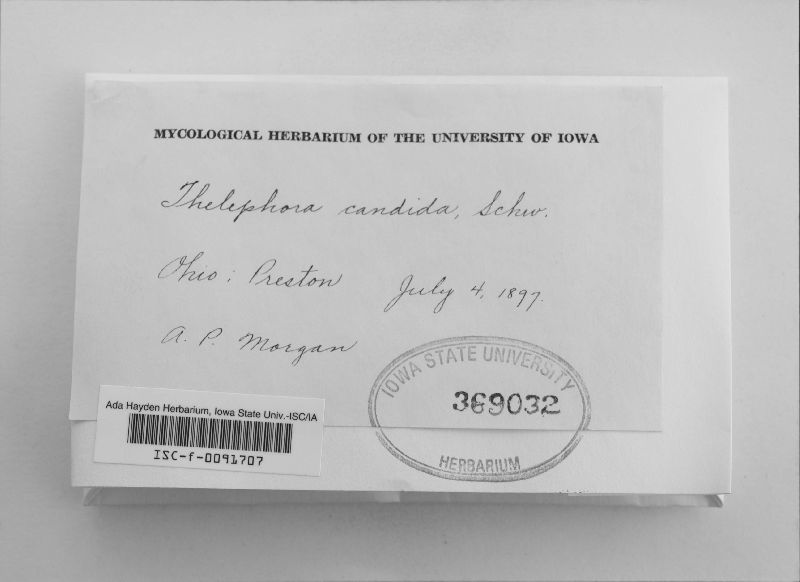 MYCOLOGICAL HERBARIUM OF THE UNIVERSITY OF IOWA
Thelephora candida, Schw.
Ohio: Preston July 4, 1897.
A. P. Morgan
IOWA STATE UNIVERSITY
369032
HERBARIUM
Ada Hayden Herbarium, Iowa State Univ.-ISC/IA
ISC-f-0091707